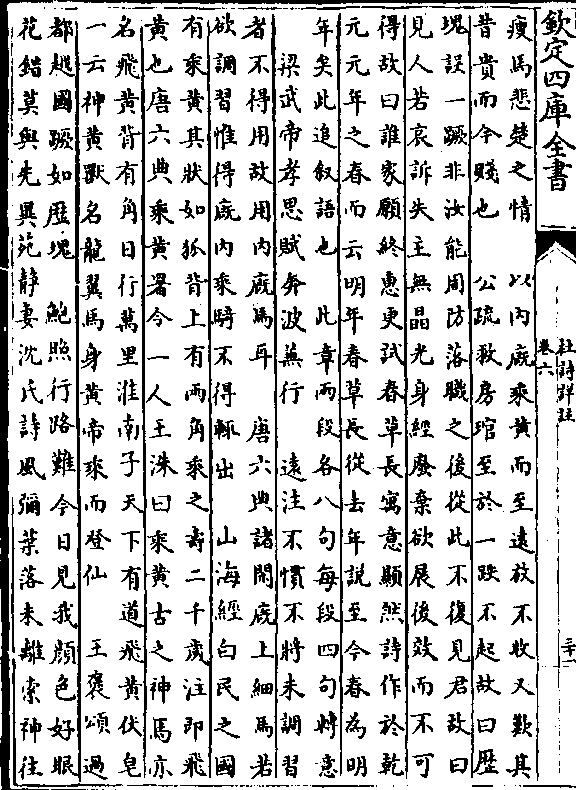 欽定四庫全書
杜詩詳註
卷六
瘦馬悲楚之情　以内廐乘黄而至遠放不收又歎其
昔貴而今賤也　公疏救房琯至於一跌不起故曰歴
塊誤一蹶非汝能周防落職之後從此不復見君故曰
見人若哀訴失主無晶光身經廢棄欲展後效而不可
得故曰誰家願終惠更試春草長寓意顯然詩作於乾
元元年之春而云明年春草長從去年說至今春為明
年矣此追叙語也　此章兩段各八句每段四句轉意
梁武帝孝思賦奔波兼行　遠注不慣不將未調習
者不得用故用内廐馬耳　唐六典諸閑廐上細馬若
欲調習惟得廐内乘騎不得輒出　山海經白民之國
有乘黄其狀如狐背上有兩角乘之壽二千歲注即飛
黄也唐六典乘黄署令一人王洙曰乘黄古之神馬亦
名飛黄背有角日行萬里淮南子天下有道飛黄伏皂
一云神黄獸名龍翼馬身黄帝乘而登仙　王褒頌過
都越國蹶如歴塊　鮑照行路難今日見我顔色好眼
花錯莫與先異苑靜妻沈氏詩風彌葉落未離索神往